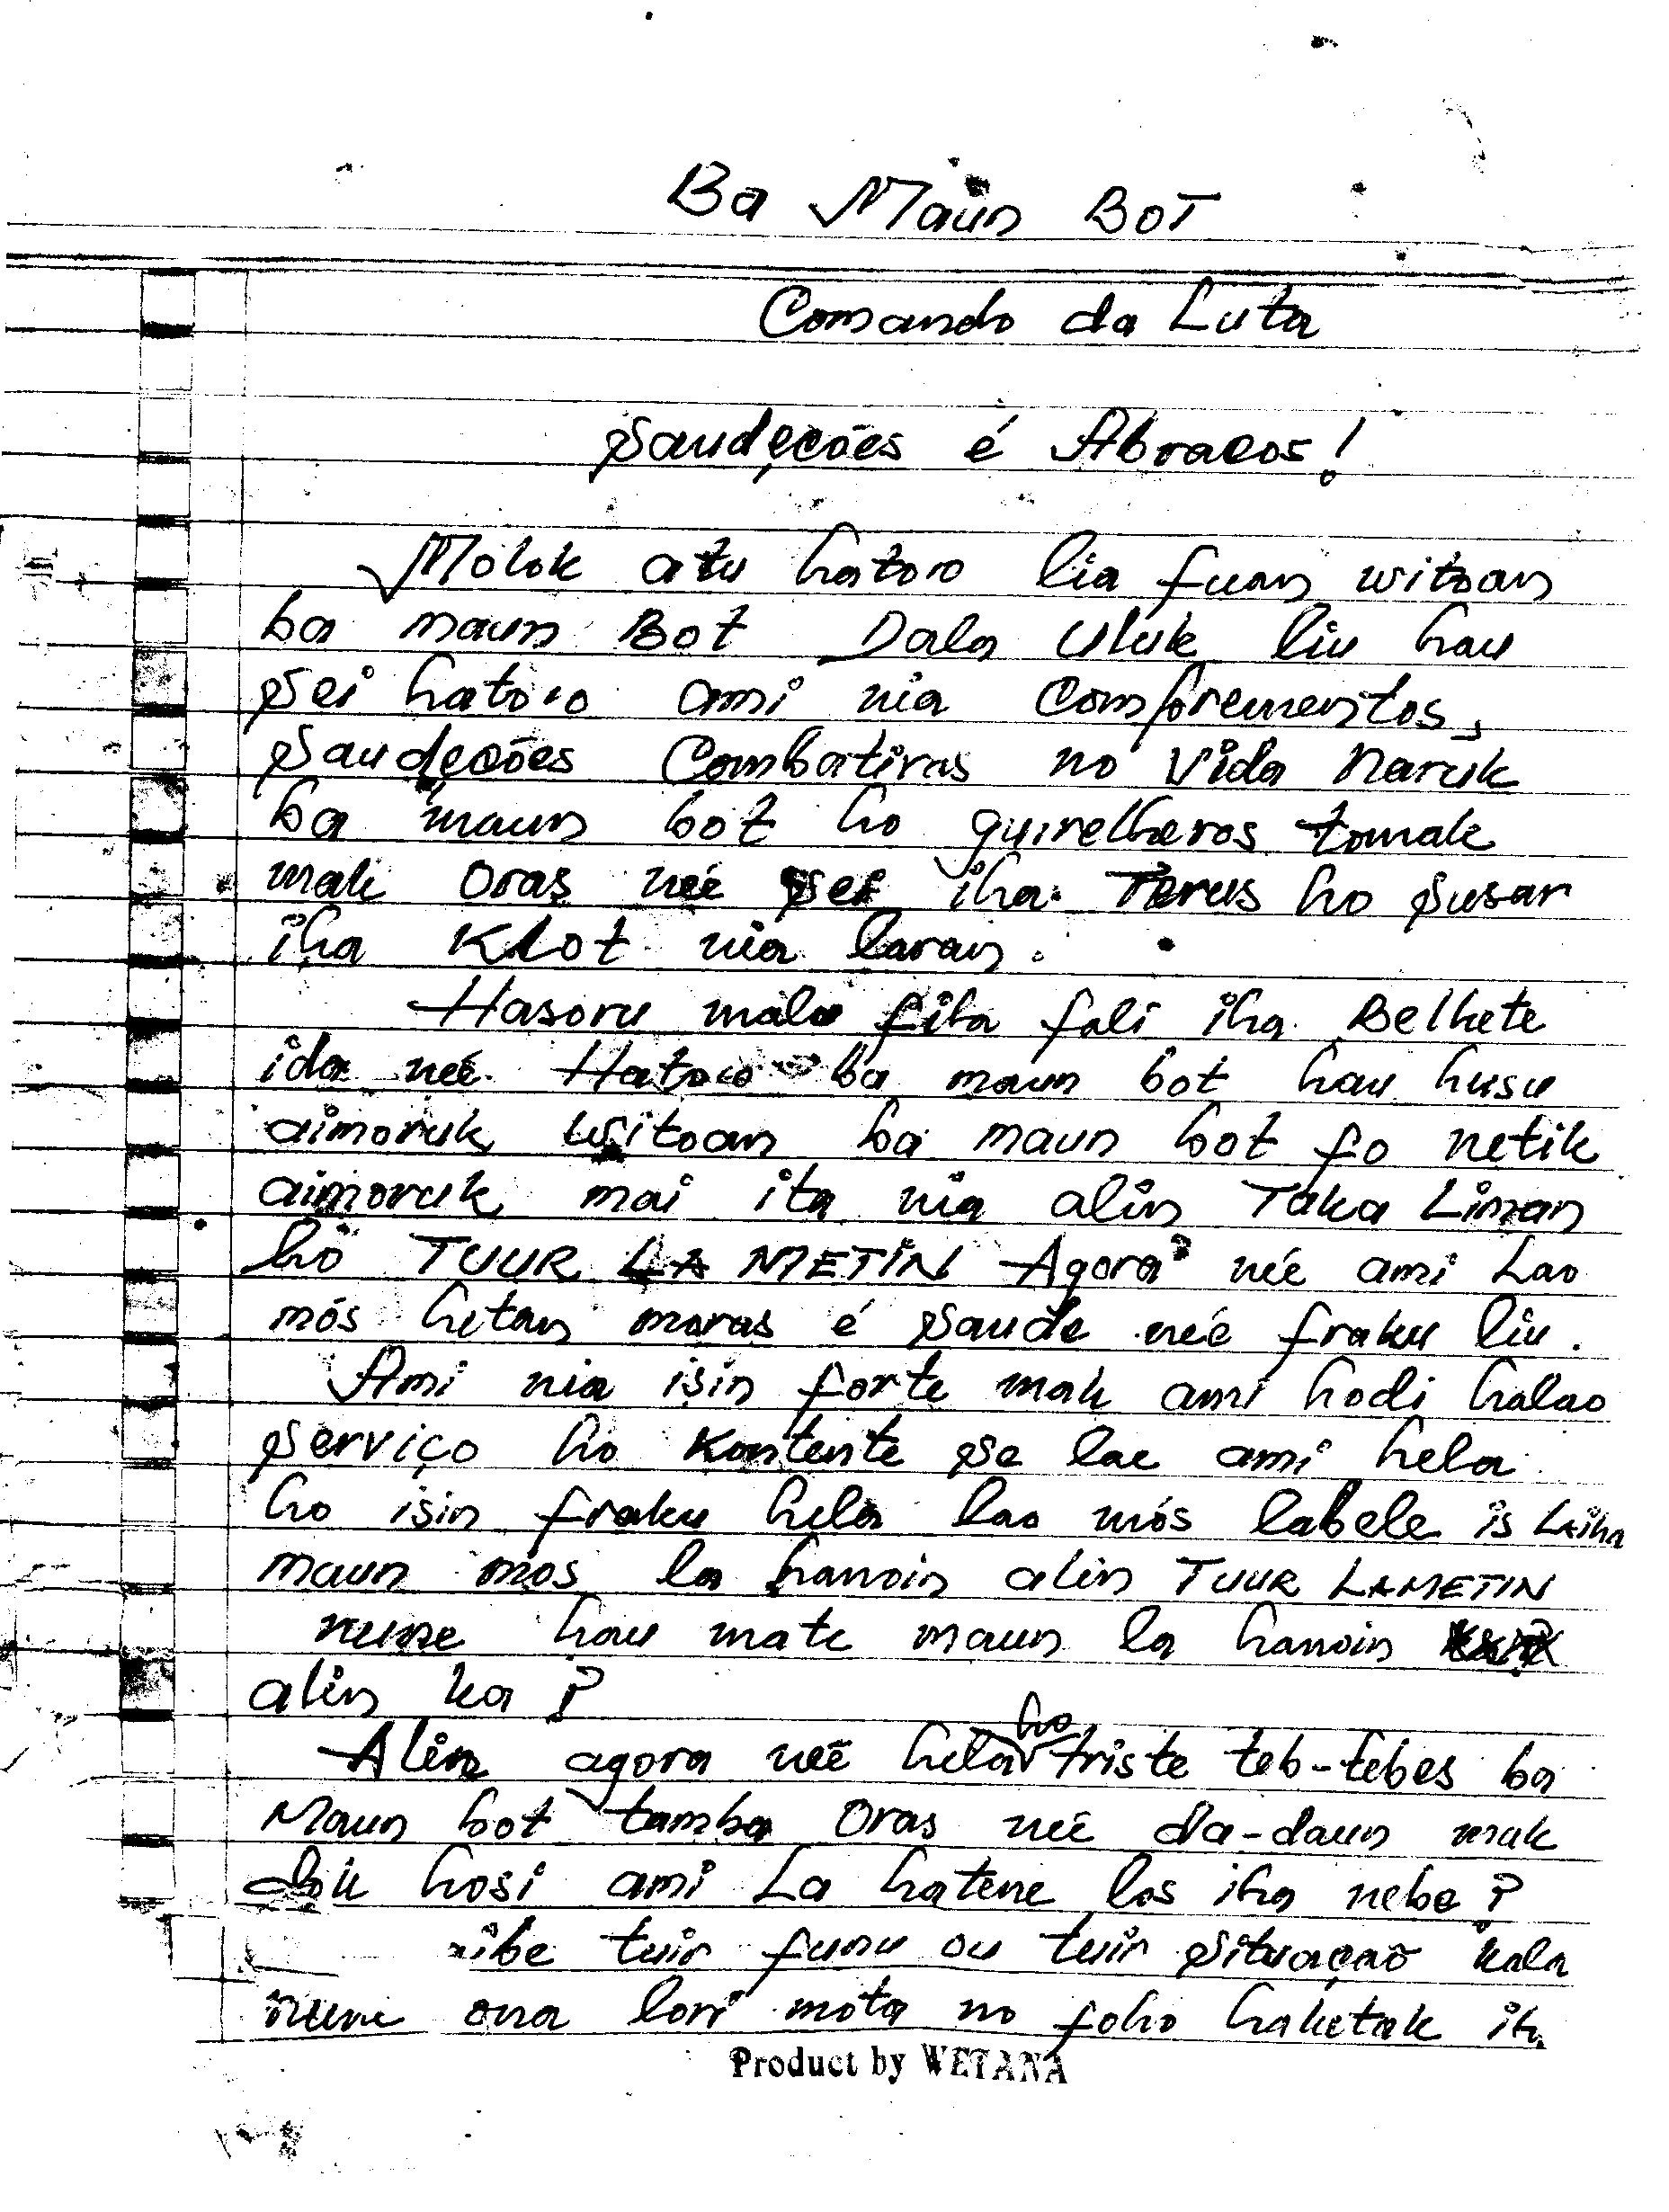 Ba Maun BOT
Comando da Luta
Saudeçoes é Abracos!
Molok atu hatoro lia fuan witoan
ba maun Bot Dala Uluk liu hau
sei hatoro ami nia Comforementos,
Saudeçoes Combativas no Vida Naruk
ba maun bot ho guirelheros tomak
mak oras neé sei iha Terus ho susar
iha KLOT nia laran.
Hasoru malu fila fali iha Belhete
ida neé Hatoro ba maun bot hau husu
aimoruk witoan ba maun bot fo netik
aimoruk mai ita nia alin Taka Liman
ho TUUR LA METIN Agora neé ami Lao
mós hetan moras é saude neé fraku liu.
Ami nia isin forte mak ami hodi halao
serviço ho Kontente se lae ami hela
ho isin fraku hela lao mós labele is Laiha
maun mos la hanoin alin TUUR LAMETIN
nune hau mate maun la hanoin
alin ka?
Alin agora neé hela ho triste teb-tebes ba
Maun bot tamba oras neé da-daun mak
dok hosi ami La hatene los iha nebe?
tuir funu ou tuir situaçaõ kala
nune ona lori mota no foho haketak ita
Product by WETANA